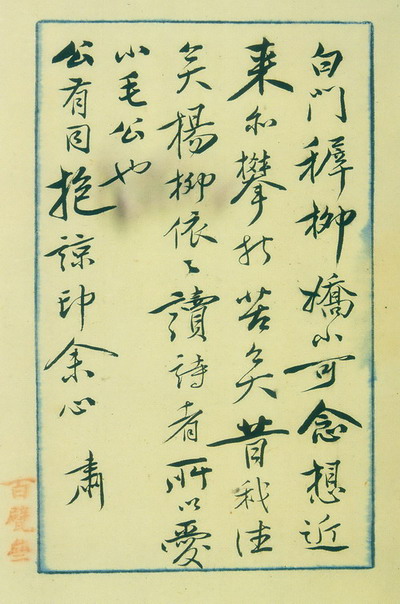 白門稺柳嬌小可念想近
来亦攀折苦矣昔我往
矣楊柳依〻讀詩者所以愛
小毛公也
公有同抱諒印余心 肅
百甓